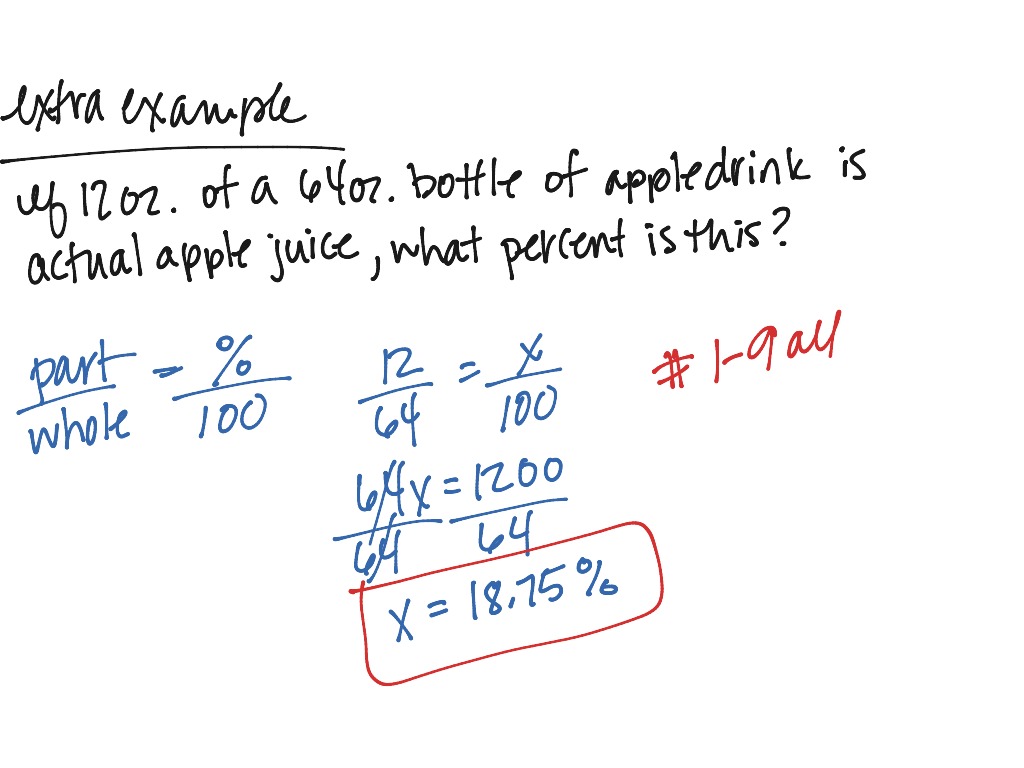 extra example
if 12 oz. of a 64 oz. bottle of apple drink is
actual apple juice, what percent is this?
part/whole = %/100
12/64 = x/100
# 1-9 all
64x/64 = 1200/64
x = 18.75%